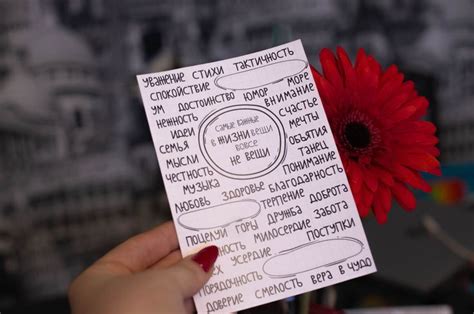 УВАЖЕНИЕ СТИХИ ТАКТИЧНОСТЬ
СПОКОЙСТВИЕ МОРЕ
УМ ДОСТОИНСТВО ЮМОР ВНИМАНИЕ
НЕЖНОСТЬ СЧАСТЬЕ
ИДЕИ МЕЧТЫ
СЕМЬЯ ОБЪЯТИЯ
МЫСЛИ ТАНЕЦ
ЧЕСТНОСТЬ ПОНИМАНИЕ
МУЗЫКА
САМЫЕ ВАЖНЫЕ
В ЖИЗНИ ВЕЩИ
ВОВСЕ
НЕ ВЕЩИ
ЗДОРОВЬЕ БЛАГОДАРНОСТЬ
ЛЮБОВЬ ТЕРПЕНИЕ ДОБРОТА
ПОЦЕЛУИ ГОРЫ ДРУЖБА ЗАБОТА
НОСТЬ МИЛОСЕРДИЕ ПОСТУПКИ
ЕХ УСЕРДИЕ
ПОРЯДОЧНОСТЬ
ДОВЕРИЕ СМЕЛОСТЬ ВЕРА В ЧУДО